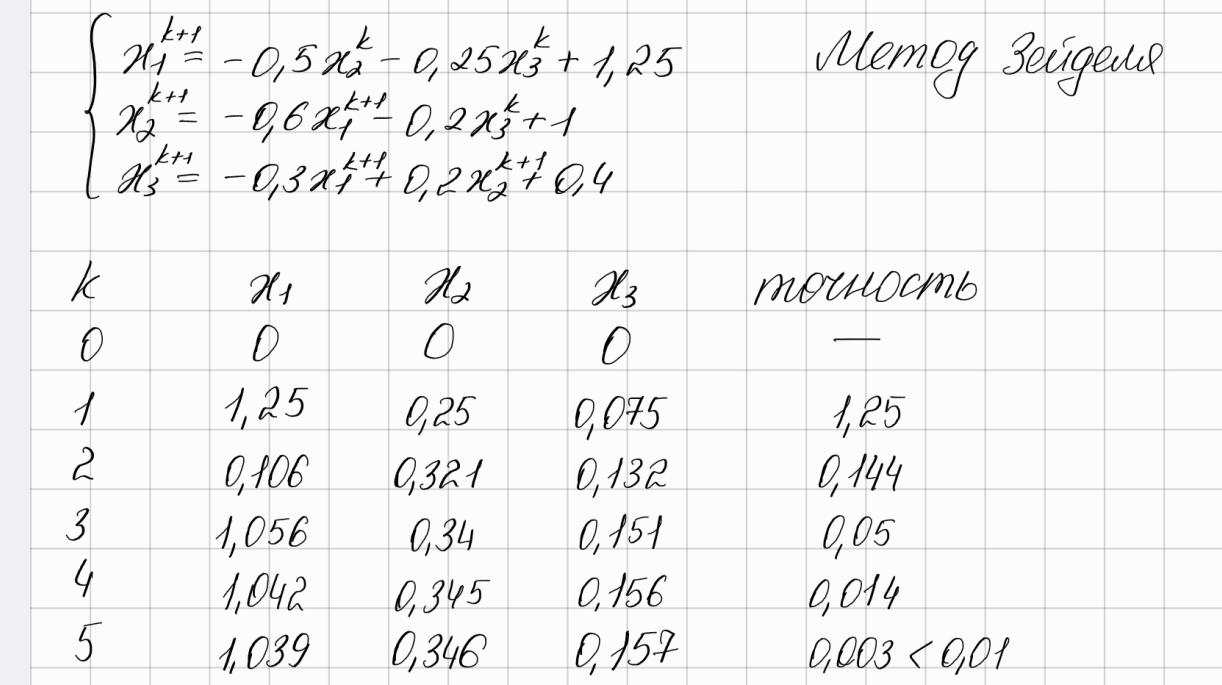 x₁ᵏ⁺¹ = -0,5x₂ᵏ - 0,25x₃ᵏ + 1,25 Метод Зейделя
x₂ᵏ⁺¹ = -0,6x₁ᵏ⁺¹ - 0,2x₃ᵏ + 1
x₃ᵏ⁺¹ = -0,3x₁ᵏ⁺¹ + 0,2x₂ᵏ⁺¹ + 0,4
k x₁ x₂ x₃ точность
0 0 0 0 —
1 1,25 0,25 0,075 1,25
2 0,106 0,321 0,132 0,144
3 1,056 0,34 0,151 0,05
4 1,042 0,345 0,156 0,014
5 1,039 0,346 0,157 0,003 < 0,01